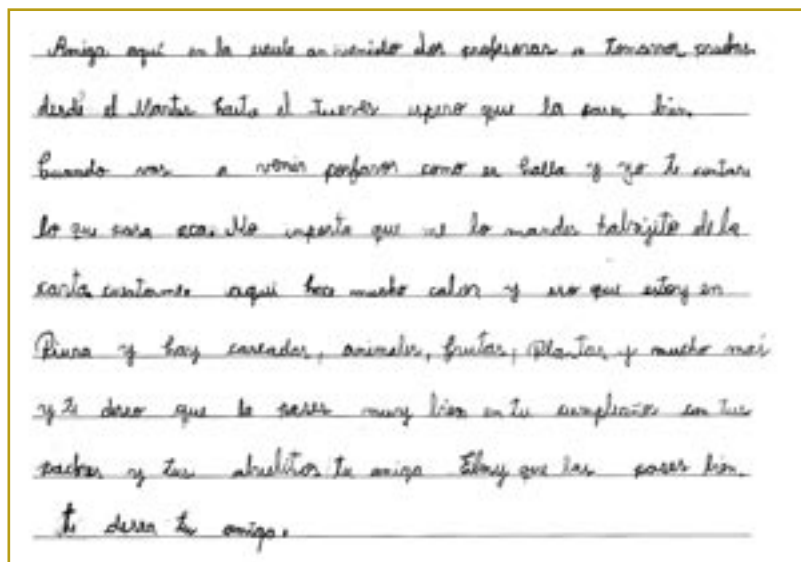 Amiga aquí en la escuela an venido dos profesoras a tomarnos pruebas
desde el Martes hasta el Jueves espero que la pases bien.
Cuando vas a venir porfavor como es halla y yo te contare
lo que pasa aca. No importa que me lo mandes trabajito de la
carta cuentame aquí hace mucho calor y eso que estoy en
Piura y hay cascadas, animales, frutas, Plantas y mucho mas
y te deseo que la pases muy bien en tu cumpleaños con tus
padres y tus abuelitos tu amiga que las pases bien.
te desea tu amiga.